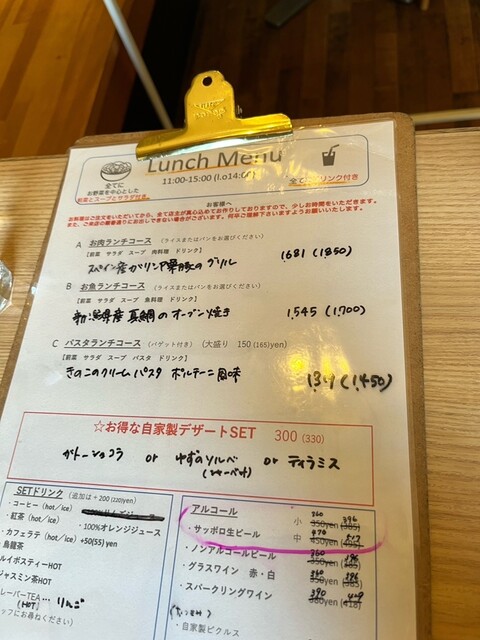 Lunch Menu
11:00-15:00 (l.o14:00)
全てに
お野菜を中心とした
前菜とスープとサラダ付き。
全てドリンク付き
お客様へ
お料理はご注文をいただいてから、全て店主が真心込めてお作りしておりますので、少しお時間をいただきます。
A お肉ランチコース (ライスまたはパンをお選びください)
【前菜 サラダ スープ 肉料理 ドリンク】
スペイン産ガリシア栗豚のグリル 1681 (1,850)
B お魚ランチコース (ライスまたはパンをお選びください)
【前菜 サラダ スープ 魚料理 ドリンク】
新潟県産真鯛のオーブン焼き 1,545 (1,700)
C パスタランチコース (バゲット付き) (大盛り 150 (165)yen)
【前菜 サラダ スープ パスタ ドリンク】
きのこのクリームパスタ ポルチーニ風味 (1,450)
☆お得な自家製デザートSET 300 (330)
ガトーショコラ or ゆずのソルベ or ティラミス
(シャーベット)
SETドリンク (追加は+200 (220)yen)
・コーヒー (hot/ice)
・紅茶 (hot/ice) ・100%オレンジジュース
・カフェラテ (hot/ice) +50(55) yen
烏龍茶
ルイボスティーHOT
ジャスミン茶HOT
レーバーTEA… りんご
(HOT)
ッフにお尋ねください)
アルコール
360 396
・サッポロ生ビール 小 350yen (385)
470 517
中 450yen (495)
360 396
・ノンアルコールビール 350yen (385)
360 396
・グラスワイン 赤・白 350yen (385)
390 429
・スパークリングワイン 380yen (418)
・自家製ピクルス